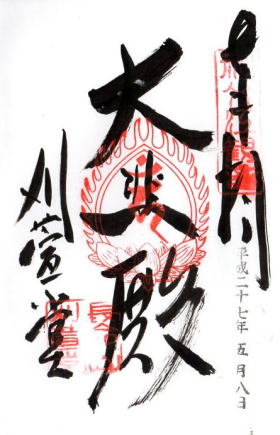 奉拝
平成二十七年五月八日
大悲殿
刈萱堂